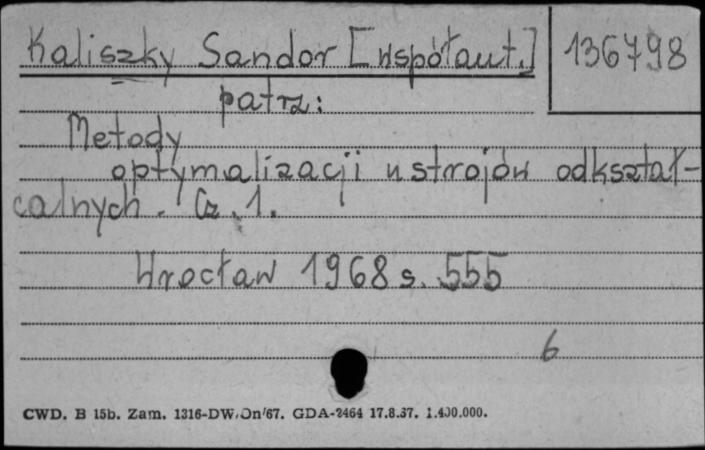 Kaliszky Sandor [współaut.] 136798
patrz:
Metody
optymalizacji ustrojów odkształ-
calnych. Cz. 1.
Wrocław 1968 s. 555
6
CWD. B 15b. Zam. 1316-DW/Dn/67. GDA-2464 17.8.67. 1.400.000.